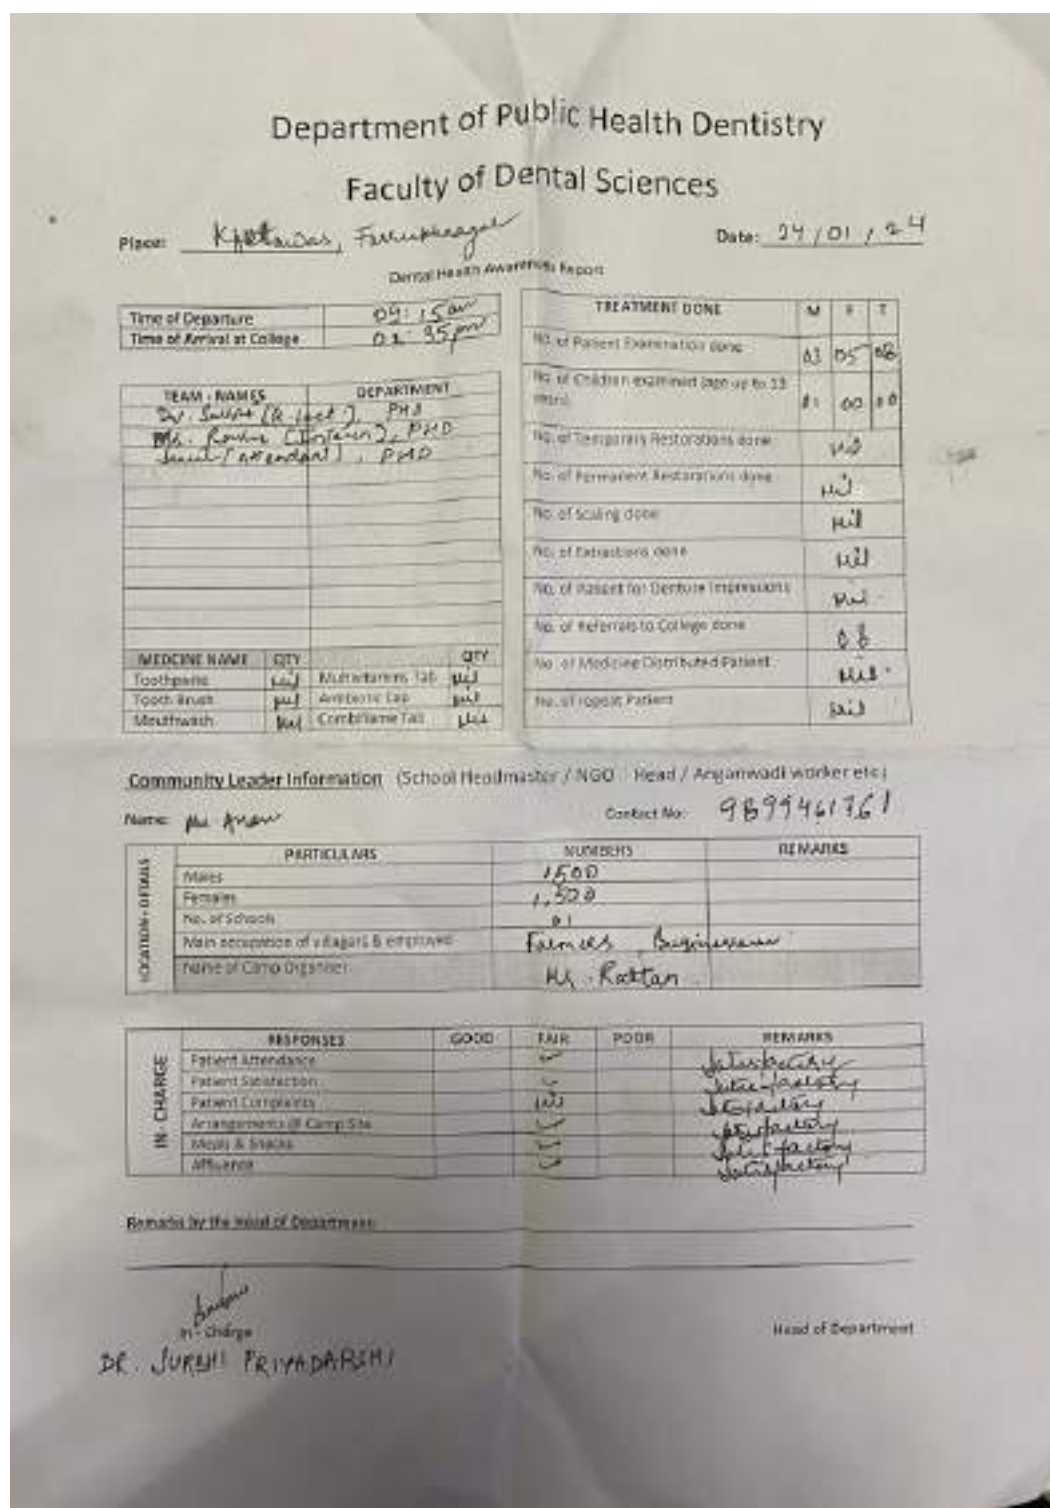 Department of Public Health Dentistry
Faculty of Dental Sciences
Place: Farrukhnagar Date: 24/01/24
Dental Health Awareness Report
Time of Departure 09:15am
Time of Arrival at College 35pm
TEAM - NAMES DEPARTMENT
Dr. PHD
Ms. [Intern], PHD
[attendant], PHD
MEDCINE NAME QTY QTY
Toothpaste Nil Multivitamins Tab Nil
Tooth Brush Nil Antibiotic Cap Nil
Mouthwash Nil Combiflame Tab Nil
TREATMENT DONE M F T
No. of Patient Examination done 03 05 08
No. of Children examined (age up to 13 years) 01 00
No. of Temporary Restorations done Nil
No. of Permanent Restorations done Nil
No. of Scaling done Nil
No. of Extractions done Nil
No. of Patient for Denture Impressions Nil
No. of Referrals to College done 08
No. of Medicine Distributed Patient Nil
No. of repeat Patient Nil
Community Leader Information (School Headmaster / NGO Head / Anganwadi worker etc)
Name: Contact No: 9899461761
LOCATION - DETAILS
PARTICULARS NUMBERS REMARKS
Males 1500
Females 1,500
No. of Schools 01
Main occupation of villagers & employed Farmers,
Name of Camp Organiser Mr. Rattan
IN - CHARGE
RESPONSES GOOD FAIR POOR REMARKS
Patient Attendance ✓ Satisfactory
Patient Satisfaction ✓ Satisfactory
Patient Complaints Nil Satisfactory
Arrangements @ Camp Site ✓ Satisfactory
Meals & Snacks ✓ Satisfactory
Affluence ✓ Satisfactory
Remarks by the Head of Department:
In - Charge Head of Department
DR. SURBHI PRIYADARSHI